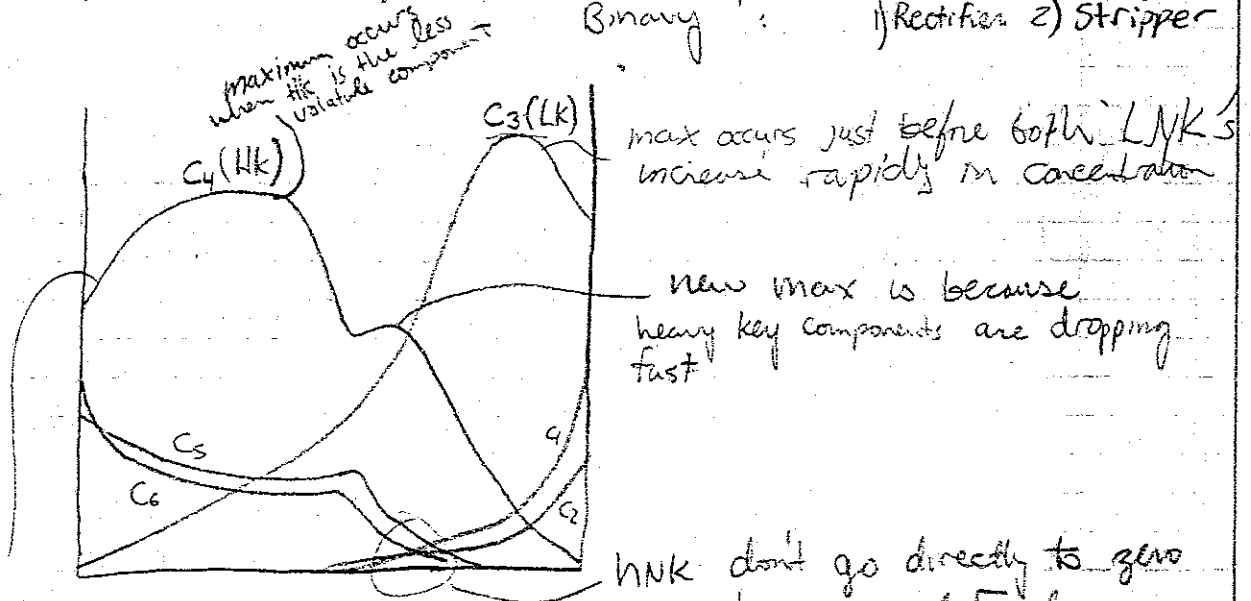 Binary : 1) Rectifier 2) Stripper
maximum occurs
when HK is the less
volatile component
C3 (LK)
C4 (HK)
max occurs just before both LNK's
increase rapidly in concentration
new max is because
heavy key components are dropping
fast
C5
C6
C1
C2
HNK don't go directly to zero